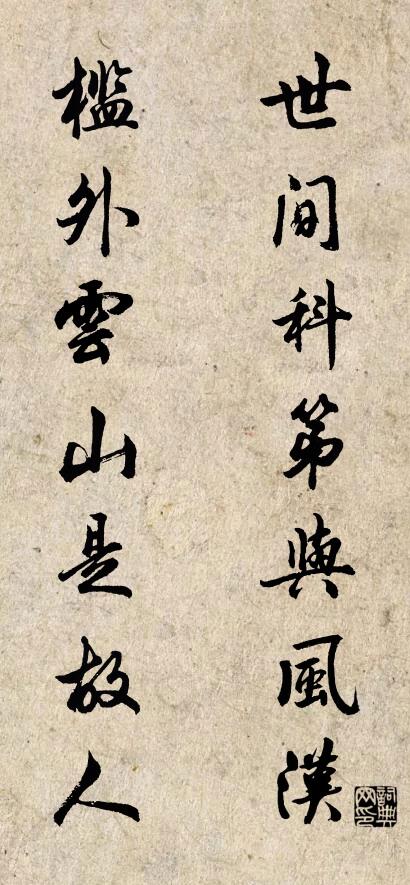 世间科第與風漢
檻外雲山是故人
詞典網印